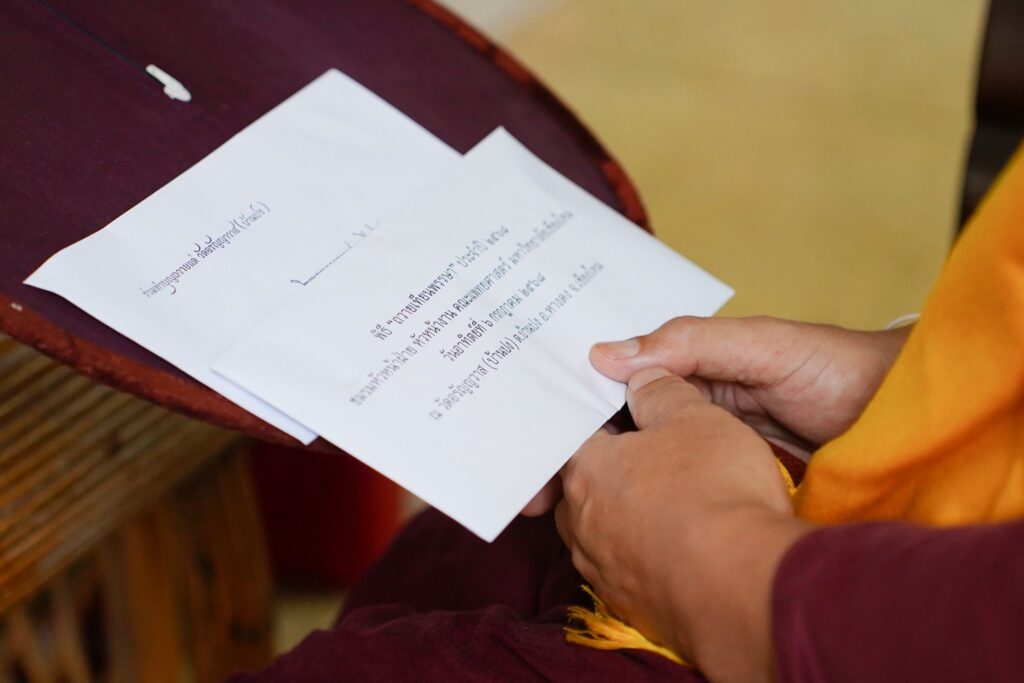 ร่วมทำบุญถวายแด่ วัดอรัญญวาส (บ้านปง)
พิธี "ถวายเทียนพรรษา" ประจำปี ๒๕๖๘
พรมหัวหน้าฝ่าย หัวหน้างาน คณะแพทยศาสตร์ มหาวิทยาลัยเชียงใหม่
วันอาทิตย์ที่ ๖ กรกฎาคม ๒๕๖๘
ณ วัดอรัญญวาส (บ้านปง) ต.บ้านปง อ.หางดง จ.เชียงใหม่